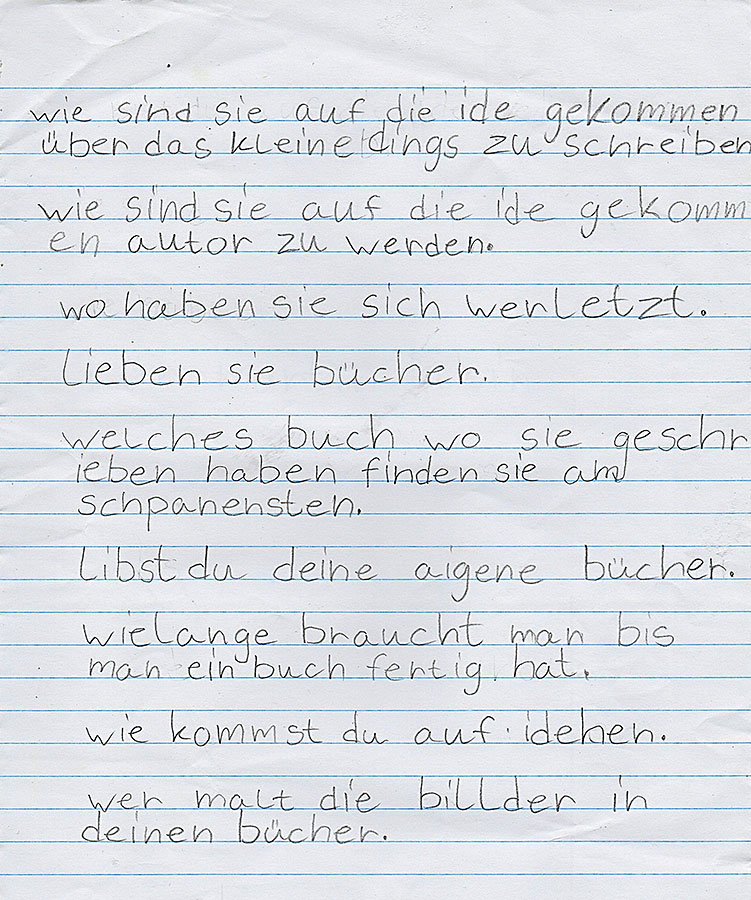 wie sind sie auf die ide gekommen
über das kleine dings zu schreiben
wie sind sie auf die ide gekomm
en autor zu werden.
wo haben sie sich werletzt.
lieben sie bücher.
welches buch wo sie geschr
ieben haben finden sie am
schpanensten.
libst du deine aigene bücher.
wielange braucht man bis
man ein buch fertig hat.
wie kommst du auf idehen.
wer malt die billder in
deinen bücher.